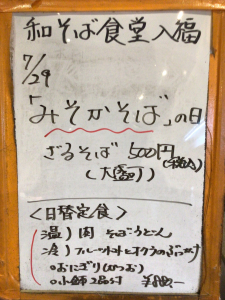 和そば食堂入福
7/29
「みそかそば」の日
ざるそば 500円(税込)
(大盛)
〈日替定食〉
温)肉 そばうどん
冷)フルーツトマトとオクラのぶっかけ
○おにぎり(かつお)
○小鉢2品付 ¥880.-